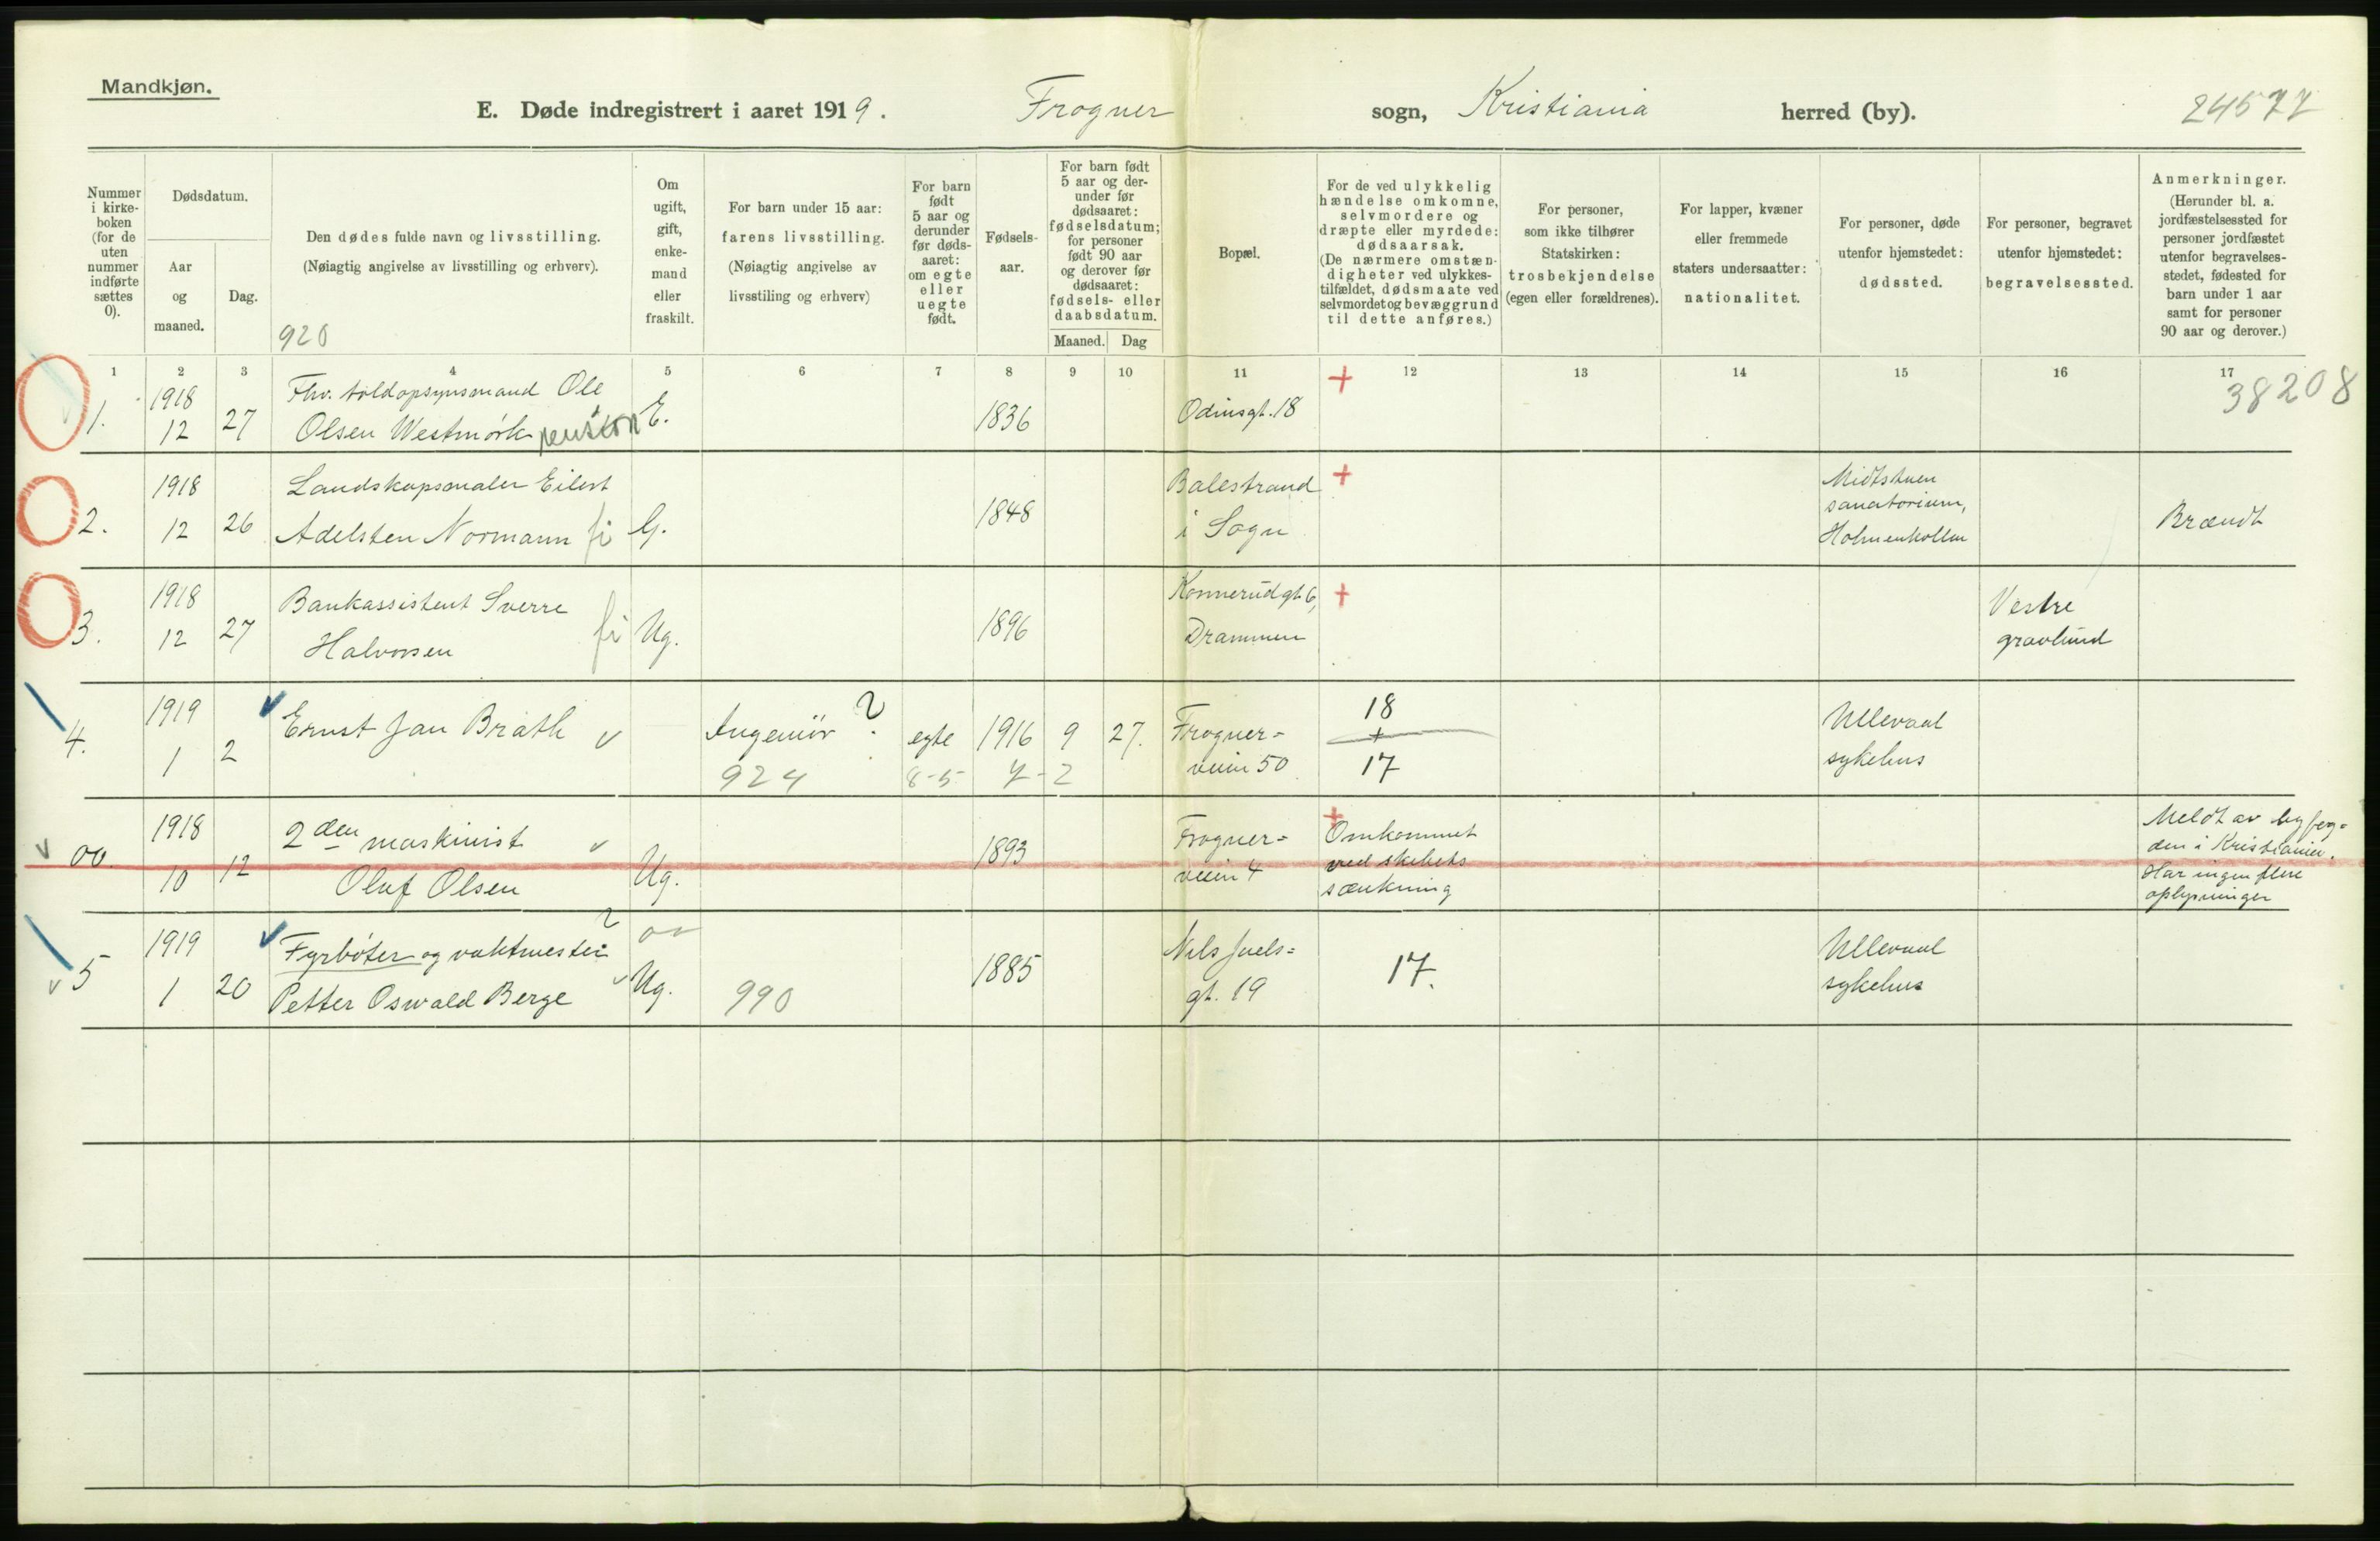 Mandkjøn.
E. Døde indregistrert i aaret 1919. Frogner sogn, Kristiania herred (by). 24577
Nummer i kirke-boken (for de uten nummer indførte sættes 0).
Dødsdatum.
Aar og maaned.
Dag.
Den dødes fulde navn og livsstilling.
(Nøiagtig angivelse av livsstilling og erhverv).
920
Om ugift, gift, enke-mand eller fraskilt.
For barn under 15 aar:
farens livsstilling.
(Nøiagtig angivelse av
livsstiling og erhverv)
For barn født 5 aar og derunder før døds-aaret: om egte eller uegte født.
Fødsels-aar.
For barn født 5 aar og der-under før dødsaaret: fødselsdatum; for personer født 90 aar og derover før dødsaaret: fødsels- eller daabsdatum.
Maaned. Dag
Bopæl.
For de ved ulykkelig hændelse omkomne, selvmordere og dræpte eller myrdede: dødsaarsak. (De nærmere omstæn-digheter ved ulykkes-tilfældet, dødsmaate ved selvmordet og bevæggrund til dette anføres.)
For personer, som ikke tilhører Statskirken: trosbekjendelse (egen eller forældrenes).
For lapper, kvæner eller fremmede staters undersaatter: nationalitet.
For personer, døde utenfor hjemstedet: dødssted.
For personer, begravet utenfor hjemstedet: begravelsessted.
Anmerkninger. (Herunder bl. a. jordfæstelsessted for personer jordfæstet utenfor begravelses-stedet, fødested for barn under 1 aar samt for personer 90 aar og derover.)
1 2 3 4 5 6 7 8 9 10 11 12 13 14 15 16 17
38208
1. 1918 12 27 Fhv. toldopsynsmand Ole
Olsen Westmørk pension E. 1836 Odinsgt. 18 +
2. 1918 12 26 Landskapsmaler Eilert
Adelsten Normann fi G. 1848 Balestrand
i Sogn + Midtstuen
sanatorium,
Holmenkollen Brændt
3. 1918 12 27 Bankassistent Sverre
Halvorsen fi Ug. 1896 Konnerudgt. 6,
Drammen + Vestre
gravlund
4. 1919 1 2 Ernst Jan Brath Ingeniør ? egte 1916 9 27. Frogner-
veien 50 18
+
17 Ullevaal
sykehus
924 8-5- 7-2
00. 1918 10 12 2den maskinist
Oluf Olsen Ug. 1893 Frogner-
veien 4 + Omkommet
ved skibets
sænkning Meldt av byfog-
den i Kristiania.
Har ingen flere
oplysninger
5 1919 1 20 Fyrbøter og vaktmester
Petter Oswald Berge Ug. 990 1885 Nils Juels=
gt. 19 17. Ullevaal
sykehus